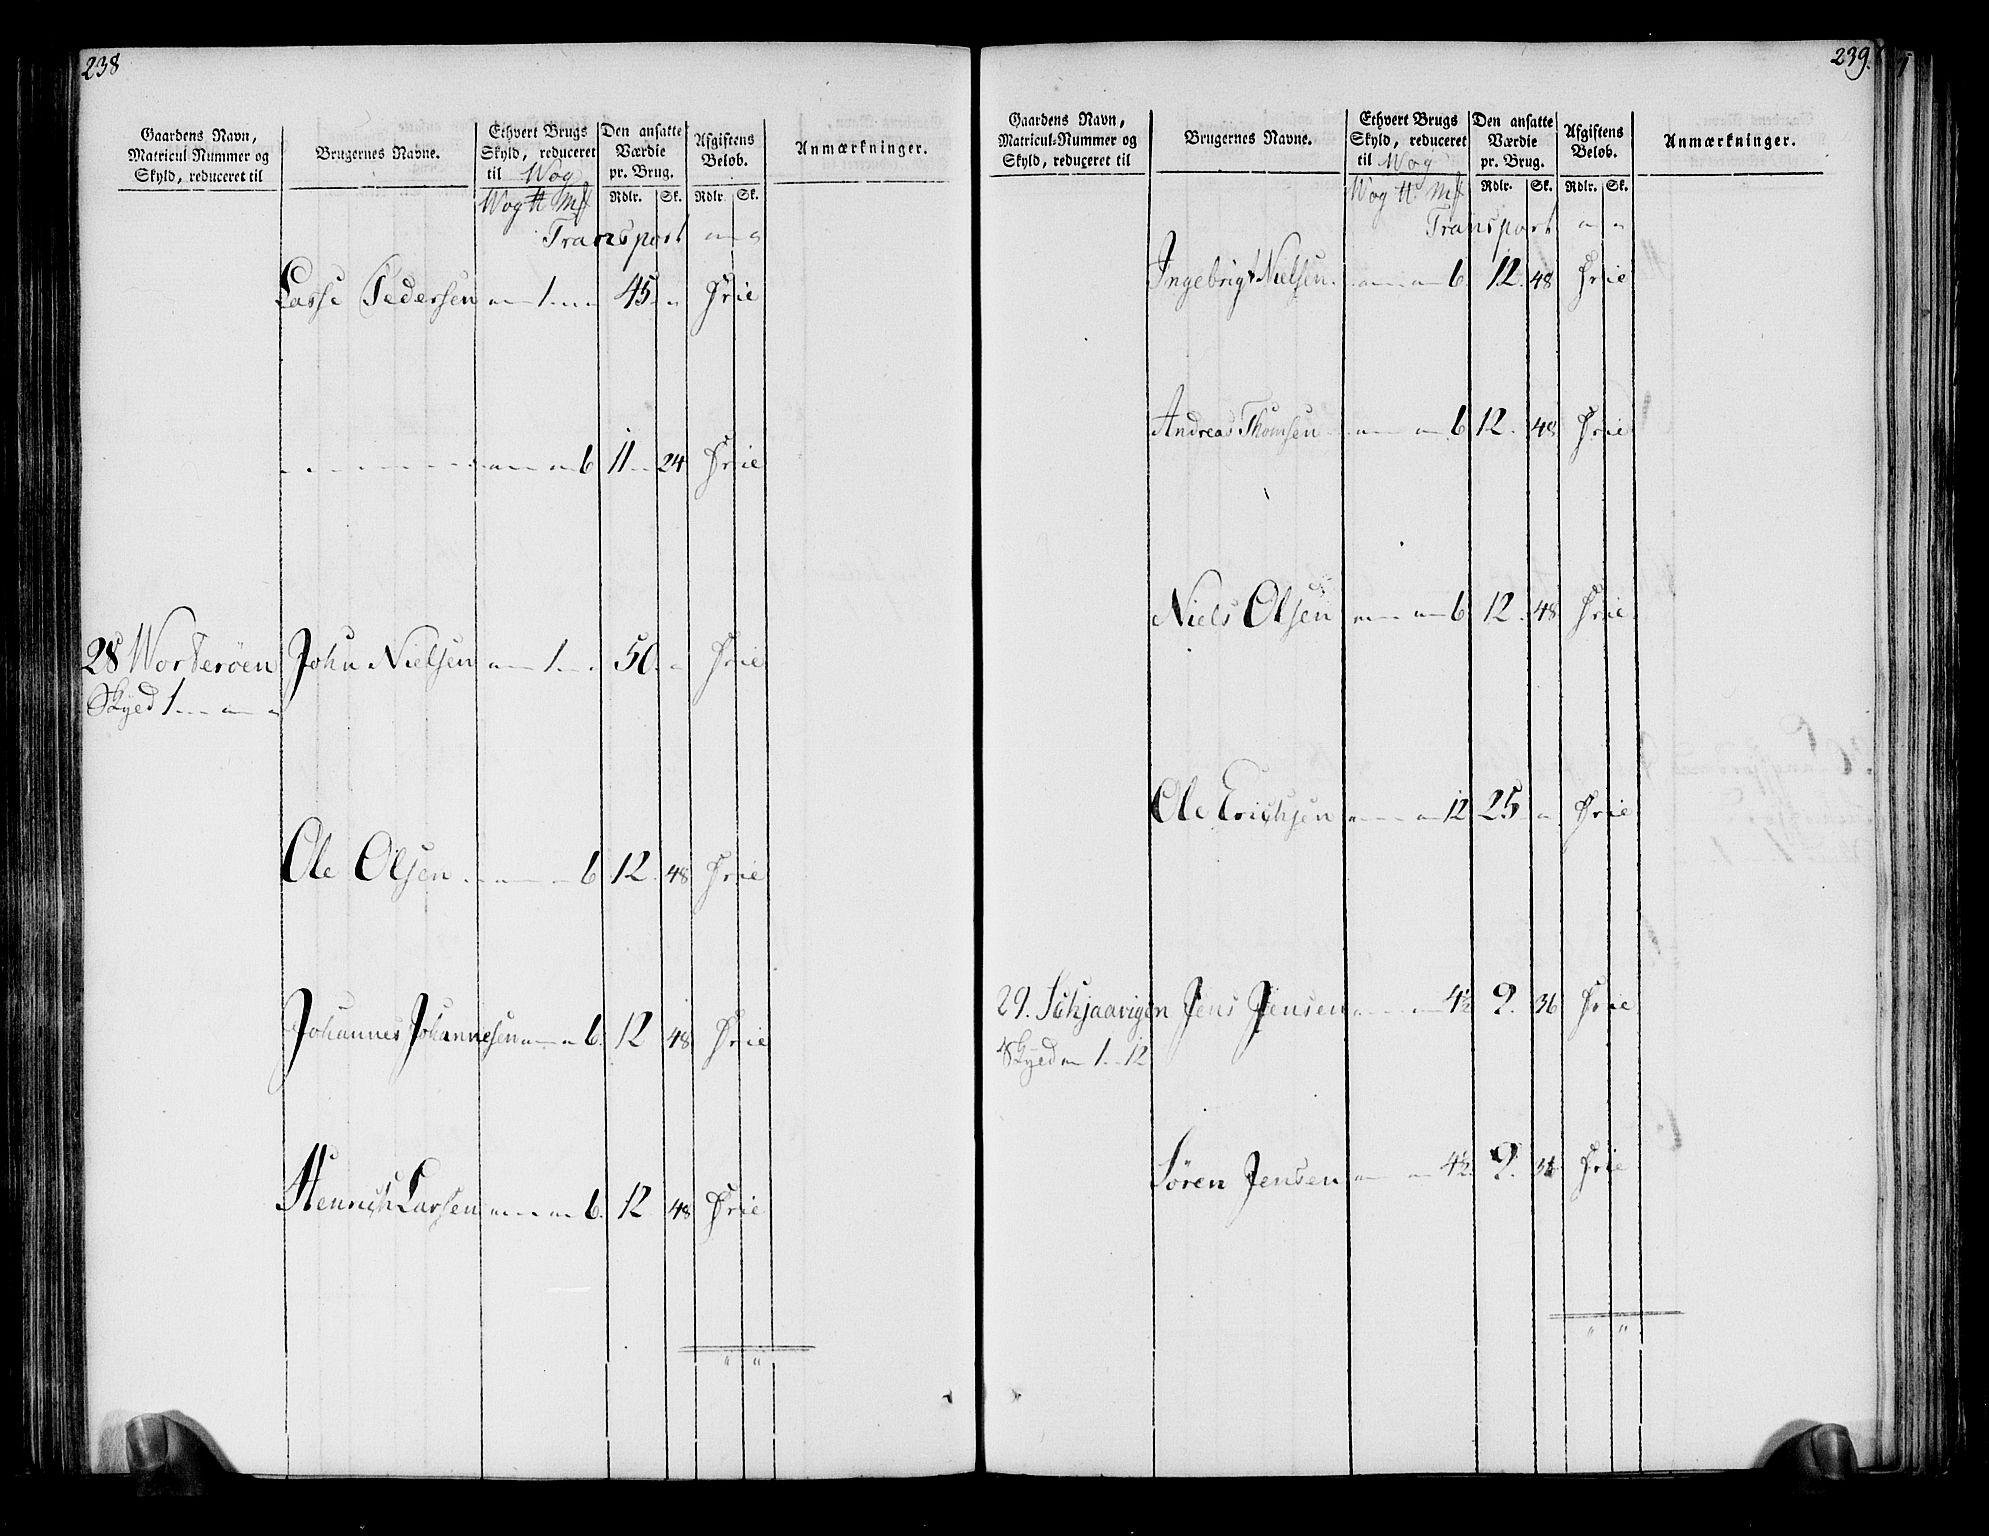 238
Gaardens Navn, Matricul Nummer og Skyld, reduceret til
Brugernes Navne.
Ethvert Brugs Skyld, reduceret til Wog
Den ansatte Værdie pr. Brug.
Afgiftens Beløb.
Anmærkninger.
Wog ℔ Mk Rdlr. Sk. Rdlr. Sk.
Transport " "
Lasse Pedersen " 1 " 45 " Frie
" " 6 11 24 Frie
28 Worterøen John Nielsen " 1 " 50 " Frie
Skyld 1 " "
Ole Olsen " " 6 12 48 Frie
Johannes Johannesen " " 6. 12 48 Frie
Henrich Larsen " " 6. 12 48 Frie
" "
239.
Gaardens Navn, Matricul-Nummer og Skyld, reduceret til
Brugernes Navne.
Ethvert Brugs Skyld, reduceret til Wog
Den ansatte Værdie pr. Brug.
Afgiftens Beløb.
Anmærkninger.
Wog ℔ Mk Rdlr. Sk. Rdlr. Sk.
Transport " "
Ingebrigt Nielsen " " 6 12. 48 Frie
Andreas Thomsen " " 6 12. 48 Frie
Niels Olsen " " 6 12. 48 Frie
Ole Erichsen " " 12 25 " Frie
29. Schjaavigen Jens Jensen " " 4½ 9. 36 Frie
Skyld " 1 " 12
Søren Jensen " " 4½ 9. 36 Frie
" "